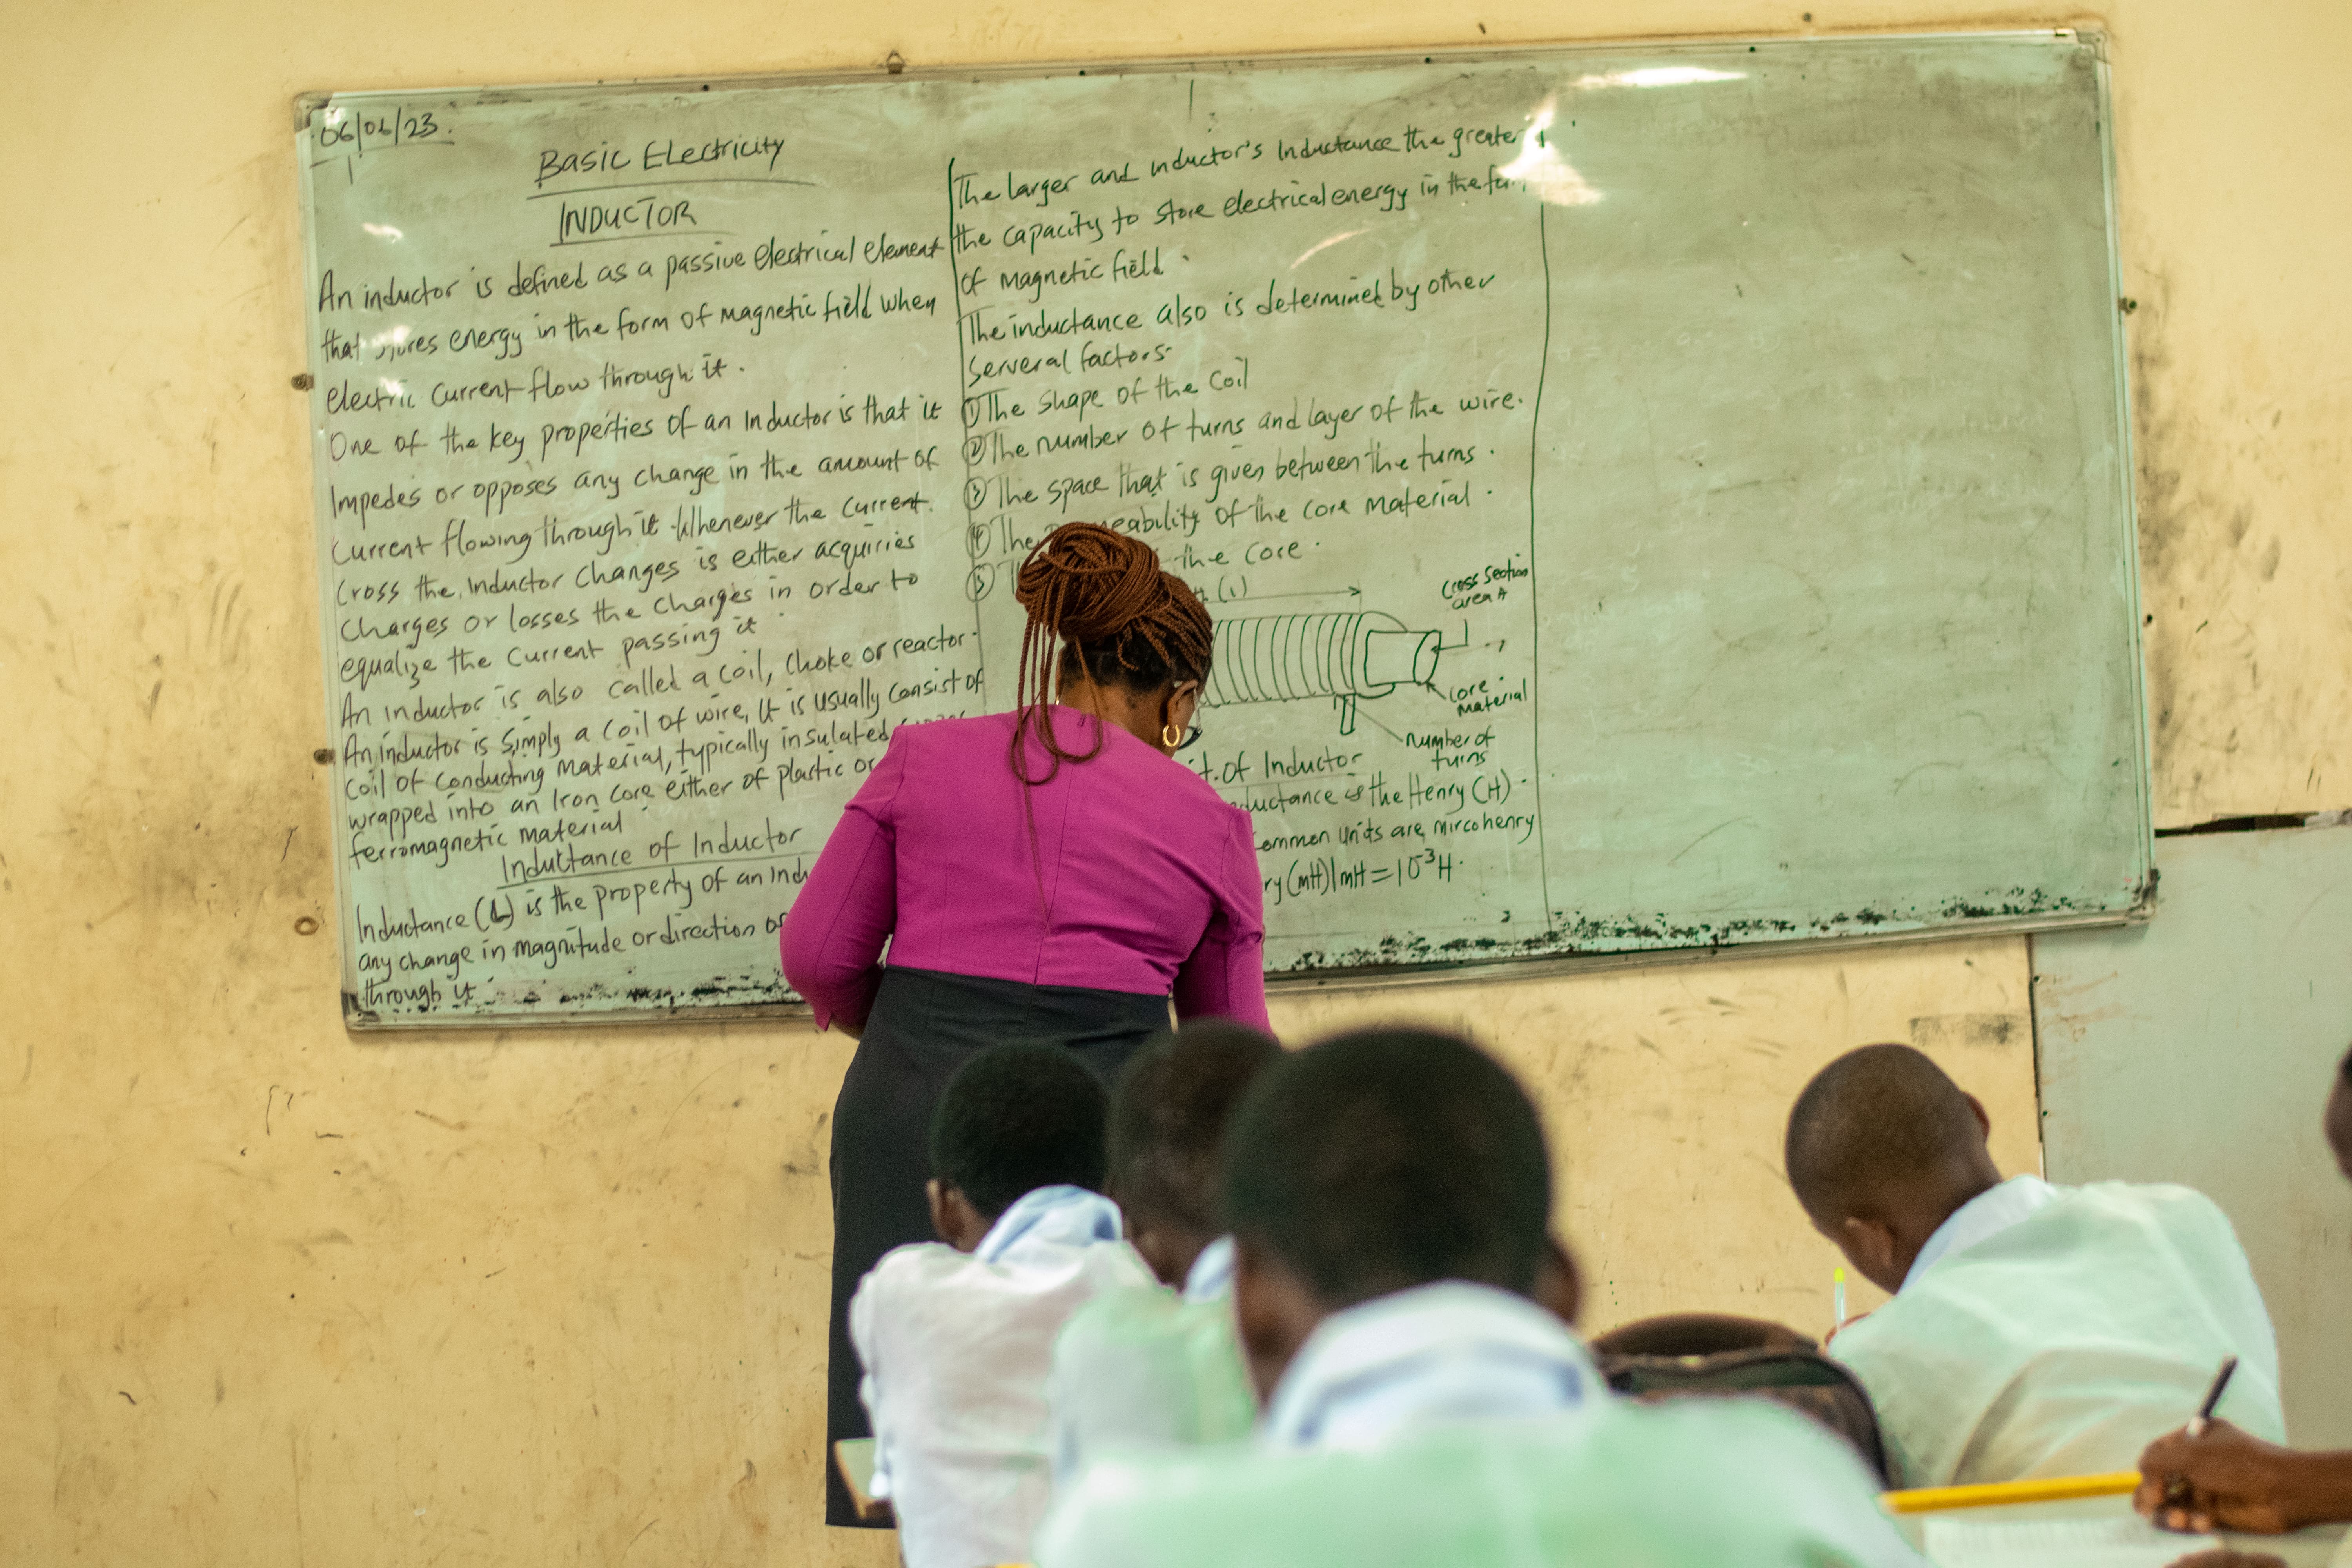 06/06/23.
Basic Electricity
INDUCTOR
An inductor is defined as a passive electrical element
that stores energy in the form of magnetic field when
electric current flow through it.
One of the key properties of an Inductor is that it
Impedes or opposes any change in the amount of
current flowing through it. Whenever the current.
Cross the Inductor changes is either acquiries
charges or losses the charges in order to
equalize the current passing it
An inductor is also called a coil, choke or reactor.
An inductor is simply a coil of wire, It is usually consist of
coil of conducting material, typically insulated
wrapped into an Iron core either of plastic or
ferromagnetic material
Inductance of Inductor
Inductance (L) is the property of an
any change in magnitude or direction
through it
The larger and inductor's Inductance the greater
the capacity to store electrical energy in the
of magnetic field.
The inductance also is determined by other
Serveral factors.
① The shape of the coil
② The number of turns and layer of the wire.
③ The space that is given between the turns.
④ The of the core material.
⑤ the core.
(l)
Cross section
area A
core
material
number of
turns
of Inductor
is the Henry (H).
units are mircohenry
(mH) 1mH = 10⁻³H.